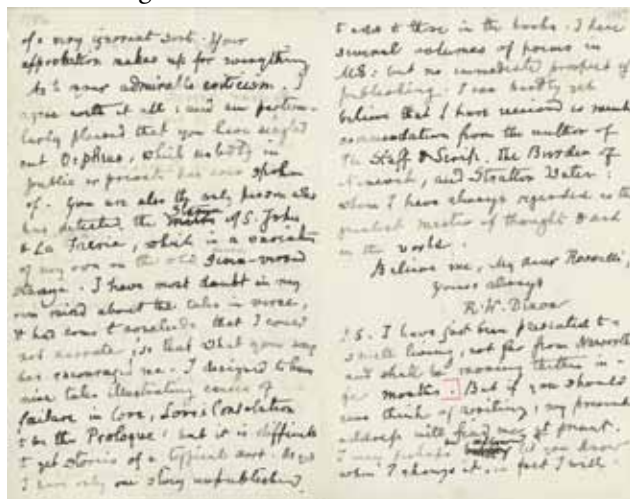 of a very ignorant sort. Your
approbation makes up for everything
As to your admirable criticism. I
agree with it all; and am particu-
larly pleased that you have singled
out Orpheus, which nobody in
public or private has ever spoken
of. You are also the only person who
has detected the metre of S. John
& La Treverie, which is a variation
of my own on the old
stanza. I have most doubt in my
own mind about the tales in verse,
& had come to conclude that I could
not narrate: so that what you say
has encouraged me. I designed to have
nine tales illustrating cases of
failure in Love, Love's Consolation
to be the Prologue; but it is difficult
to get stories of a typical sort. As yet
I have only one story unpublished
to add to those in the books. I have
several volumes of poems in
MS: but no immediate prospect of
publishing. I can hardly yet
believe that I have received so much
commendation from the author of
The Staff & Scrip, the Burden of
Nineveh, and Stratton Water:
whom I have always regarded as the
greatest master of thought & art
in the world.
Believe me, My dear Rossetti,
Yours always
R. W. Dixon
P.S. I have just been presented to a
small living, not far from Naworth
and shall be moving thither in a
few months. But if you should
ever think of writing, my present
address will find me at present.
I may perhaps let you know
when I change it: in fact I will.